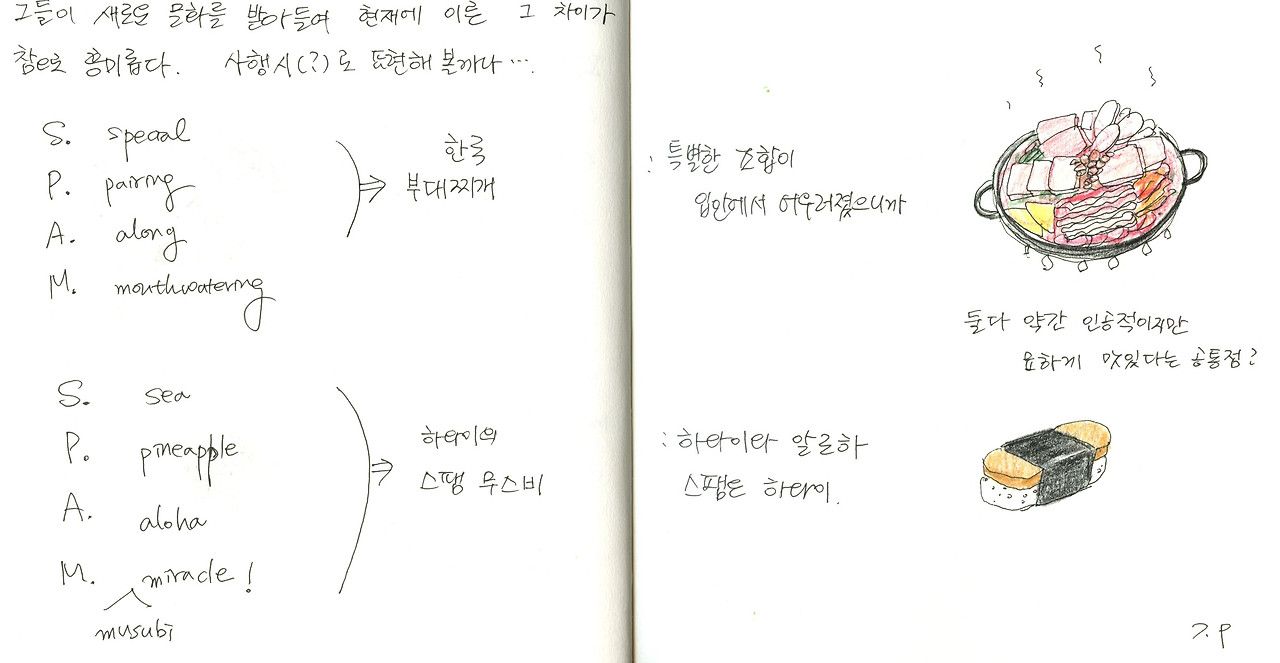 그들이 새로운 문화를 받아들여 현재에 이른 그 차이가
참으로 흥미롭다. 사행시(?)로 표현해 볼까나….
S. special
P. pairing
A. along
M. mouthwatering
⇒ 한국
부대찌개
: 특별한 조합이
입안에서 어우러졌으니까
둘다 약간 인공적이지만
묘하게 맛있다는 공통점?
S. sea
P. pineapple
A. aloha
M. miracle!
musubi
⇒ 하와이의
스팸 무스비
: 하와이라 알로하
스팸은 하와이.